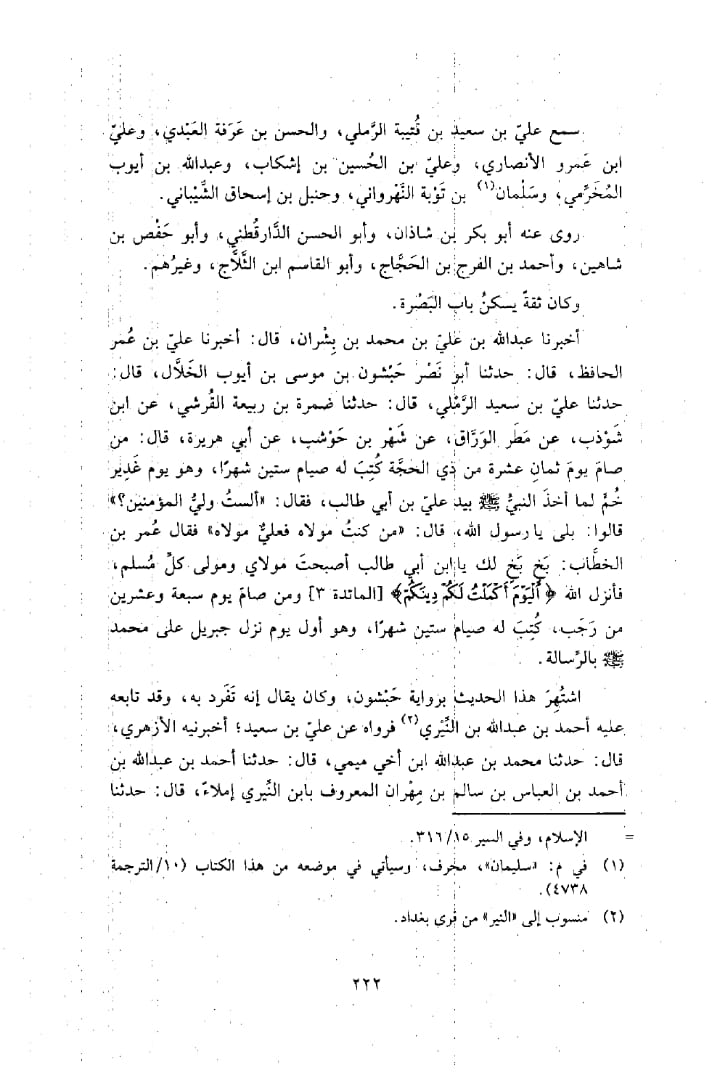 سمع عليّ بن سعيد بن قُتيبة الرَّملي، والحسن بن عَرَفة العَبْدي، وعليّ
ابن عَمرو الأنصاري، وعليّ بن الحُسين بن إشكاب، وعبدالله بن أيوب
المُخَرِّمي، وسَلْمان(١) بن تَوْبة النَّهرواني، وحنبل بن إسحاق الشَّيْباني.
روى عنه أبو بكر بن شاذان، وأبو الحسن الدَّارقُطني، وأبو حَفْص بن
شاهين، وأحمد بن الفرج بن الحَجَّاج، وأبو القاسم ابن الثَّلَّاج، وغيرُهم.
وكان ثقةً يسكنُ باب البَصْرة.
أخبرنا عبدالله بن عليّ بن محمد بن بِشْران، قال: أخبرنا عليّ بن عُمر
الحافظ، قال: حدثنا أبو نَصْر حَبْشون بن موسى بن أيوب الخَلَّال، قال:
حدثنا عليّ بن سعيد الرَّمْلي، قال: حدثنا ضمرة بن ربيعة القُرشي، عن ابن
شَوْذب، عن مَطَر الوَرَّاق، عن شَهْر بن حَوْشب، عن أبي هريرة، قال: من
صامَ يومَ ثمانِ عشرة من ذي الحجَّة كُتِبَ له صيام ستين شهرًا، وهو يوم غَدِير
خُمٍّ لما أخذَ النبيُّ ﷺ بيد عليّ بن أبي طالب، فقال: «ألستُ وليُّ المؤمنين؟»
قالوا: بلى يارسول الله، قال: «من كنتُ مولاه فعليٌّ مولاه» فقال عُمر بن
الخطَّاب: بَخٍ بَخٍ لك يا ابن أبي طالب أصبحتَ مولاي ومولى كلِّ مُسلم،
فأنزل الله ﴿ٱلْيَوْمَ أَكْمَلْتُ لَكُمْ دِينَكُمْ﴾ [المائدة ٣] ومن صامَ يوم سبعة وعشرين
من رَجَب، كُتِبَ له صيام ستين شهرًا، وهو أول يوم نزل جبريل على محمد
ﷺ بالرِّسالة.
اشتُهِرَ هذا الحديث برواية حَبْشون، وكان يقال إنه تَفَرد به، وقد تابعه
عليه أحمد بن عبدالله بن النِّيْري(٢) فرواه عن عليّ بن سعيد؛ أخبرنيه الأزهري،
قال: حدثنا محمد بن عبدالله ابن أخي ميمي، قال: حدثنا أحمد بن عبدالله بن
أحمد بن العباس بن سالم بن مِهْران المعروف بابن النِّيري إملاءً، قال: حدثنا
= الإسلام، وفي السير ٣١٦/١٥.
(١) في م: «سليمان»، محرف، وسيأتي في موضعه من هذا الكتاب (١٠/الترجمة
٤٧٣٨).
(٢) منسوب إلى «النير» من قرى بغداد.
٢٢٢